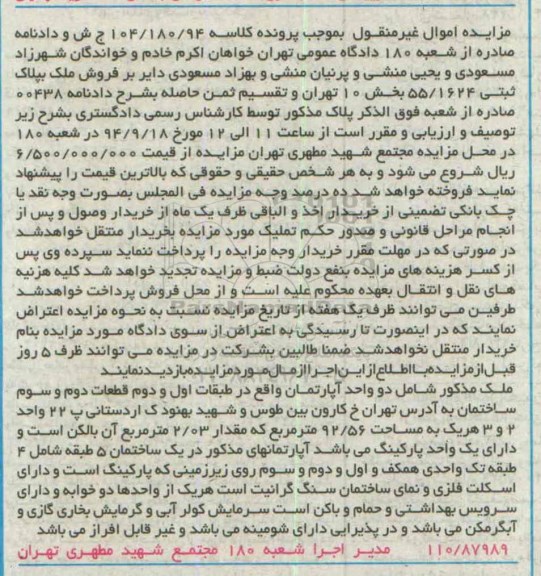 مزایده اموال غیرمنقول بموجب پرونده کلاسه ۱۰۴/۱۸۰/۹۴ ج ش و دادنامه
صادره از شعبه ۱۸۰ دادگاه عمومی تهران خواهان اکرم خادم و خواندگان شهرزاد
مسعودی و یحیی منشی و پرنیان منشی و بهزاد مسعودی دایر بر فروش ملک بپلاک
ثبتی ۵۵/۱۶۲۴ بخش ۱۰ تهران و تقسیم ثمن حاصله بشرح دادنامه ۰۰۴۳۸
صادره از شعبه فوق الذکر پلاک مذکور توسط کارشناس رسمی دادگستری بشرح زیر
توصیف و ارزیابی و مقرر است از ساعت ۱۱ الی ۱۲ مورخ ۹۴/۹/۱۸ در شعبه ۱۸۰
در محل مزایده مجتمع شهید مطهری تهران مزایده از قیمت ۶/۵۰۰/۰۰۰/۰۰۰
ریال شروع می شود و به هر شخص حقیقی و حقوقی که بالاترین قیمت را پیشنهاد
نماید فروخته خواهد شد ده درصد وجه مزایده فی المجلس بصورت وجه نقد یا
چک بانکی تضمینی از خریدار اخذ و الباقی ظرف یک ماه از خریدار وصول و پس از
انجام مراحل قانونی و صدور حکم تملیک مورد مزایده بخریدار منتقل خواهدشد
در صورتی که در مهلت مقرر خریدار وجه مزایده را پرداخت ننماید سپرده وی پس
از کسر هزینه های مزایده بنفع دولت ضبط و مزایده تجدید خواهد شد کلیه هزینه
های نقل و انتقال بعهده محکوم علیه است و از محل فروش پرداخت خواهدشد
طرفین می توانند ظرف یک هفته از تاریخ مزایده نسبت به نحوه مزایده اعتراض
نمایند که در اینصورت تا رسیدگی به اعتراض از سوی دادگاه مورد مزایده بنام
خریدار منتقل نخواهدشد ضمنا طالبین بشرکت در مزایده می توانند ظرف ۵ روز
قبل از مزایده با اطلاع از این اجرا از مال مورد مزایده بازدید نمایند
ملک مذکور شامل دو واحد آپارتمان واقع در طبقات اول و دوم قطعات دوم و سوم
ساختمان به آدرس تهران خ کارون بین طوس و شهید بهنود ک اردستانی پ ۲۲ واحد
۲ و ۳ هریک به مساحت ۹۲/۵۶ مترمربع که مقدار ۲/۰۳ مترمربع آن بالکن است و
دارای یک واحد پارکینگ می باشد آپارتمانهای مذکور در یک ساختمان ۵ طبقه شامل ۴
طبقه تک واحدی همکف و اول و دوم و سوم روی زیرزمینی که پارکینگ است و دارای
اسکلت فلزی و نمای ساختمان سنگ گرانیت است هریک از واحدها دو خوابه و دارای
سرویس بهداشتی و حمام و باکن است سرمایش کولر آبی و گرمایش بخاری گازی و
آبگرمکن می باشد و در پذیرایی دارای شومینه می باشد و غیر قابل افراز می باشد
۱۱۰/۸۷۹۸۹ مدیر اجرا شعبه ۱۸۰ مجتمع شهید مطهری تهران